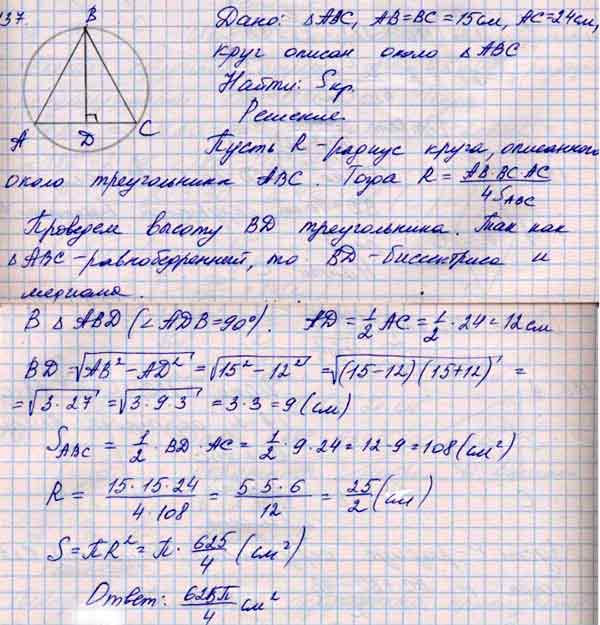 37.
B
A
D
C
Дано: △ABC, AB=BC=15см, AC=24см,
круг описан около △ABC
Найти: Sкр.
Решение.
Пусть R - радиус круга, описанного
около треугольника ABC. Тогда R = AB·BC·AC / 4S_ABC
Проведем высоту BD треугольника. Так как
△ABC - равнобедренный, то BD - биссектриса и
медиана.
В △ABD (∠ADB=90°). AD = 1/2 AC = 1/2 · 24 = 12 см
BD = √(AB² − AD²) = √(15² − 12²) = √((15−12)(15+12)) =
= √(3·27) = √(3·9·3) = 3·3 = 9 (см)
S_ABC = 1/2 · BD · AC = 1/2 · 9 · 24 = 12·9 = 108 (см²)
R = 15·15·24 / 4·108 = 5·5·6 / 12 = 25/2 (см)
S = ПR² = П · 625/4 (см²)
Ответ: 625П/4 см²